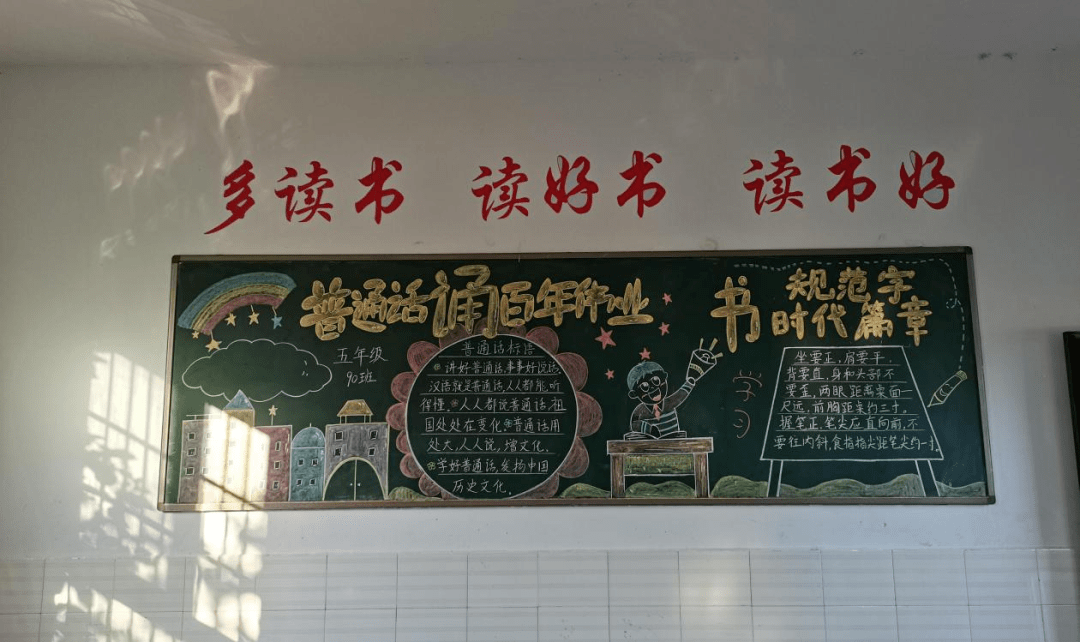 多读书 读好书 读书好
普通话诵百年伟业
书规范字
时代篇章
五年级
90班
普通话标语
讲好普通话,事事好说话,
汉语就是普通话,人人都能听
得懂。人人都说普通话,祖
国处处在变化。普通话用
处大,人人说,增文化。
学好普通话,发扬中国
历史文化。
学习
坐要正,肩要平,
背要直,身和头部不
要歪,两眼距离桌面一
尺远,前胸距桌约三寸。
握笔正笔尖应直向前,不
要往内斜,食指指尖距笔尖约一寸